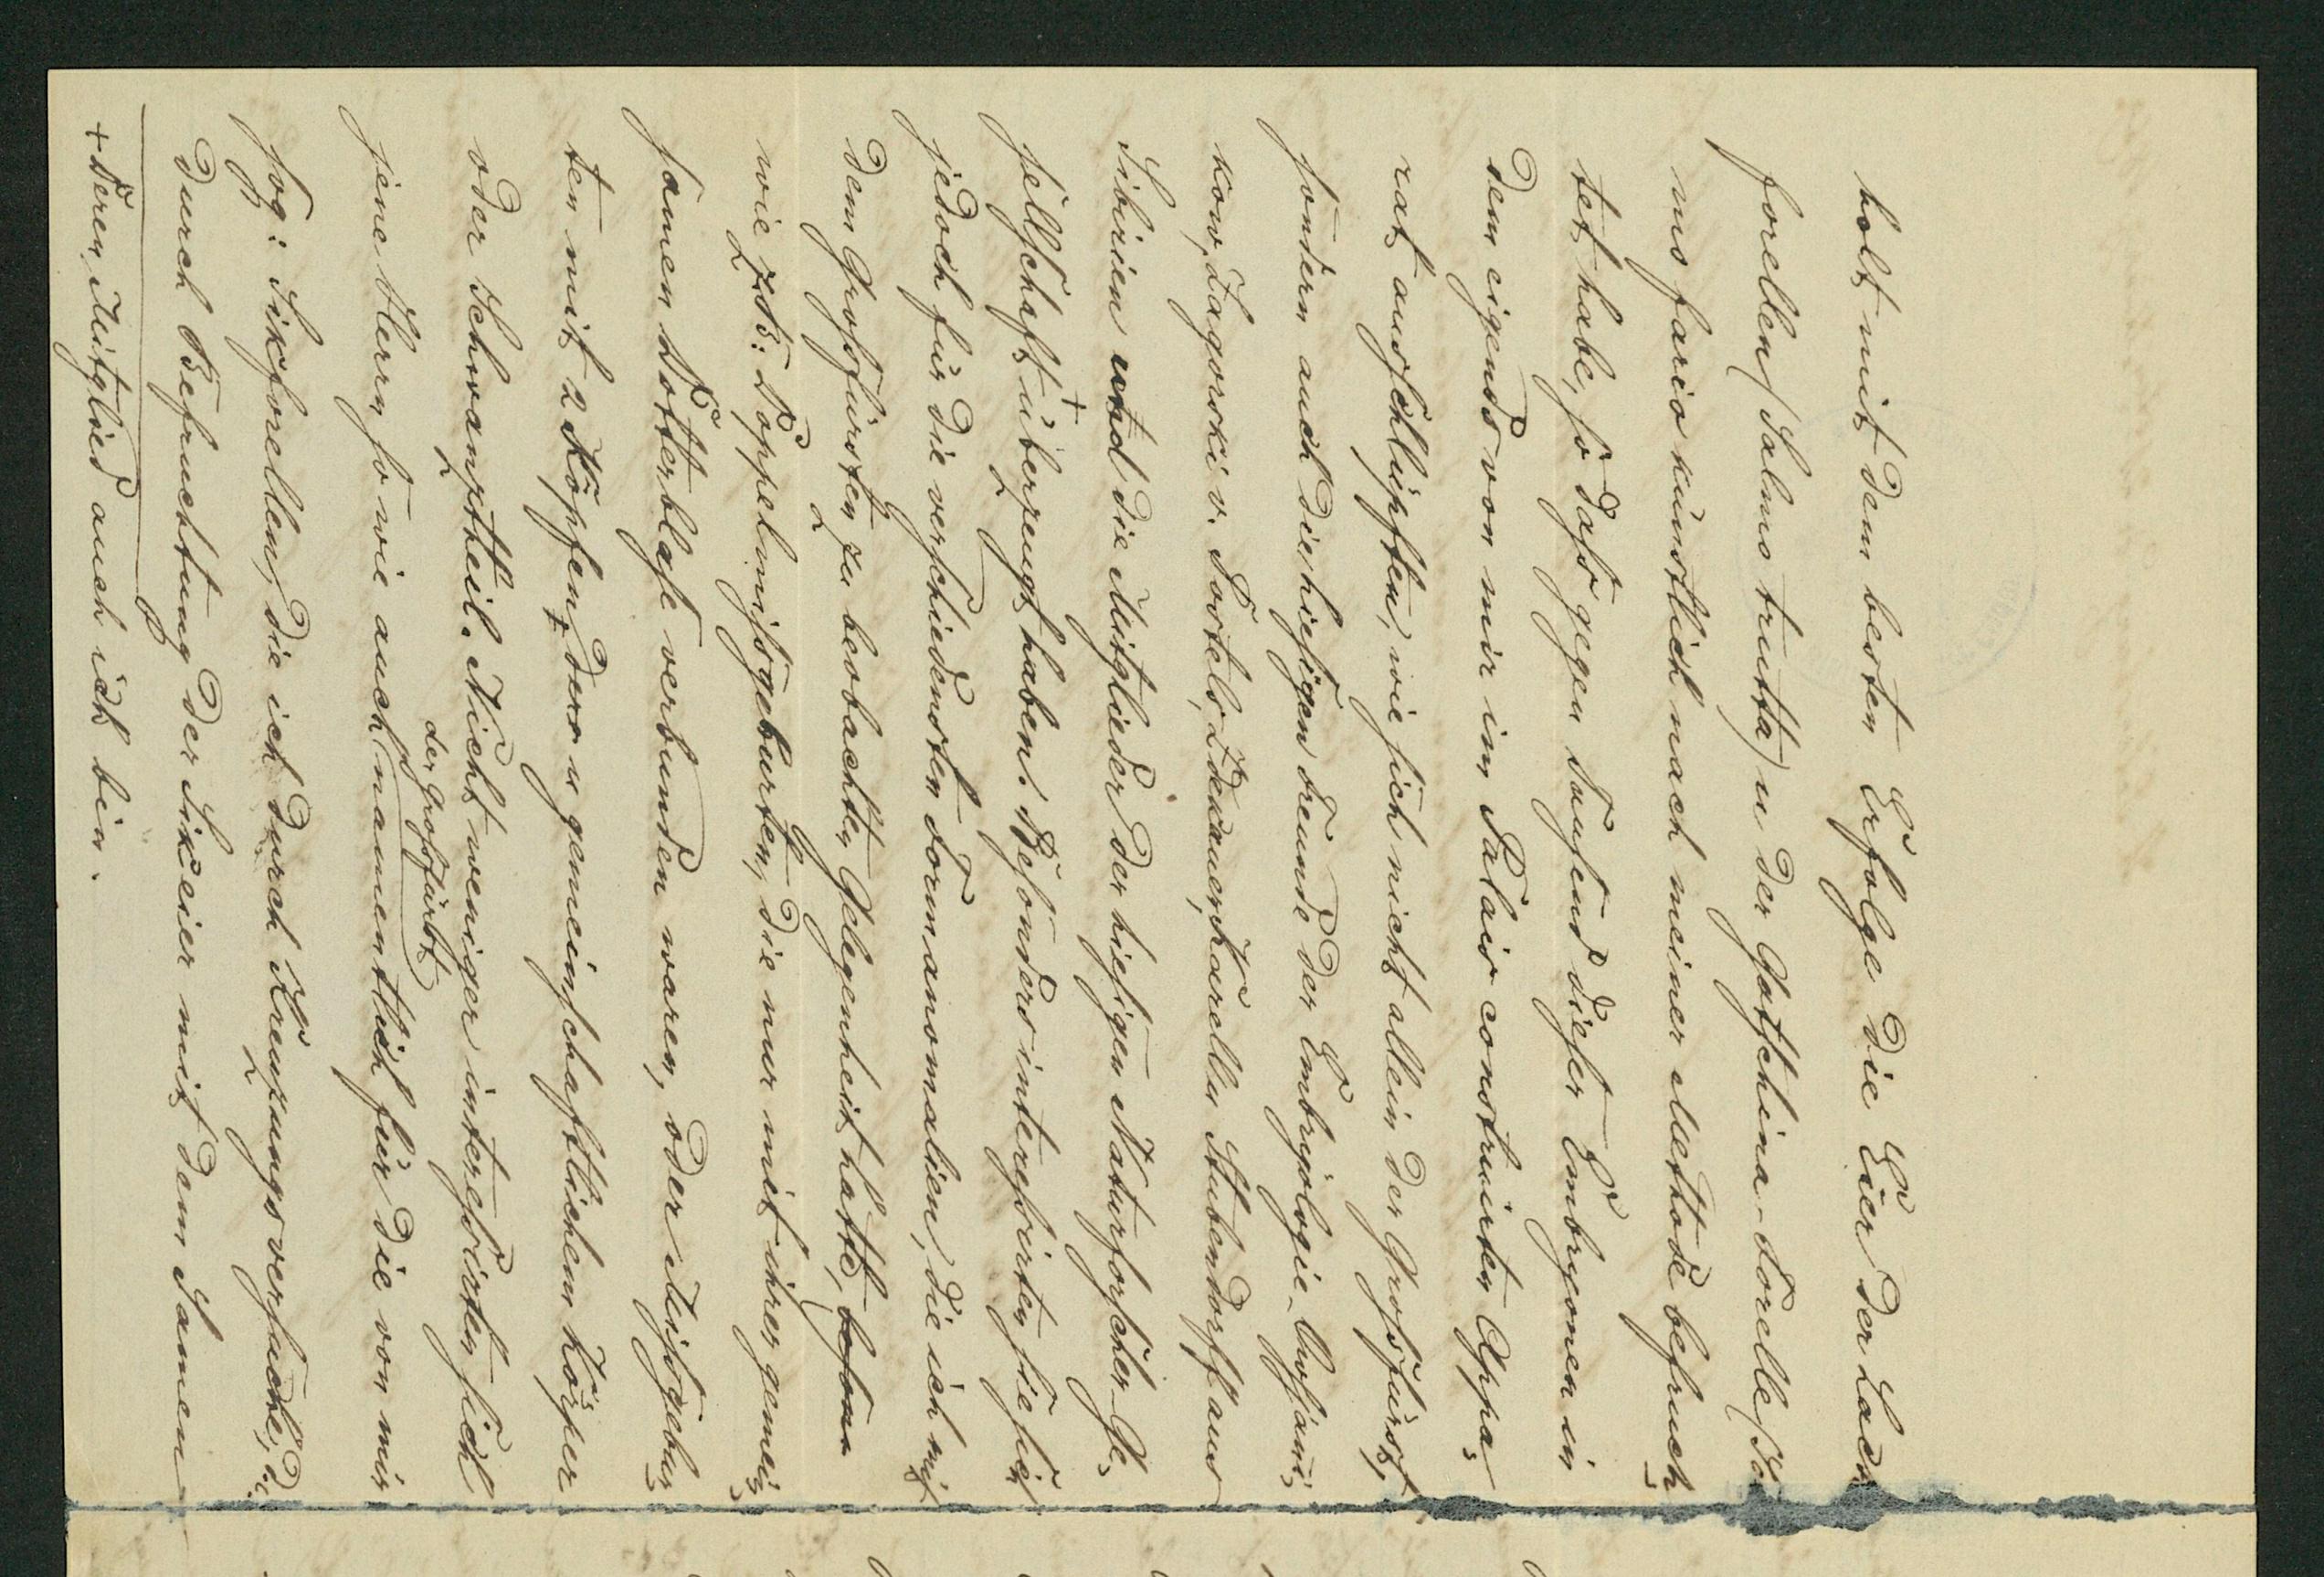 holt mit dem besten Erfolge die Eier der Lachs
forellen (Salmo trutta) u der Gatschina-Forelle (Sal
mo fario künstlich nach meiner Methode befruch-
tet habe, so dass gegen Tausend dieser Embryonen in
dem eigends von mir im Palais construirten Appa-
rat ausschlüpften, wie sich nicht allein der Grossfürst,
sondern auch die hiesigen Freunde der Embryologie
kow, Zagorski v. Stubendorff aus
Sibirien und die Mitglieder der hiesigen Naturforscher-Ge-
sellschaft + überzeugt haben. Besonders interessirten sie sich
jedoch für die verschiedensten Formanomalien, die ich mit
dem Grossfürsten zu beobachten Gelegenheit hatte,
wie z. B: Doppelmissgeburten, die nur mit ihrer gemein-
samen Dotterblase verbunden waren, oder Missgebur-
ten mit 2 Köpfen, u gemeinschaftlichem Körper
oder Schwanztheil. Nicht weniger interessirten sich
der Grossfürst
jene Herrn so wie auch namentlich für die von mir
sog: Sikforellen, die ich durch Kreuzungsversuche, d.i:
durch Befruchtung der Sikeier mit dem Samen
+ deren Mitglied auch ich bin.